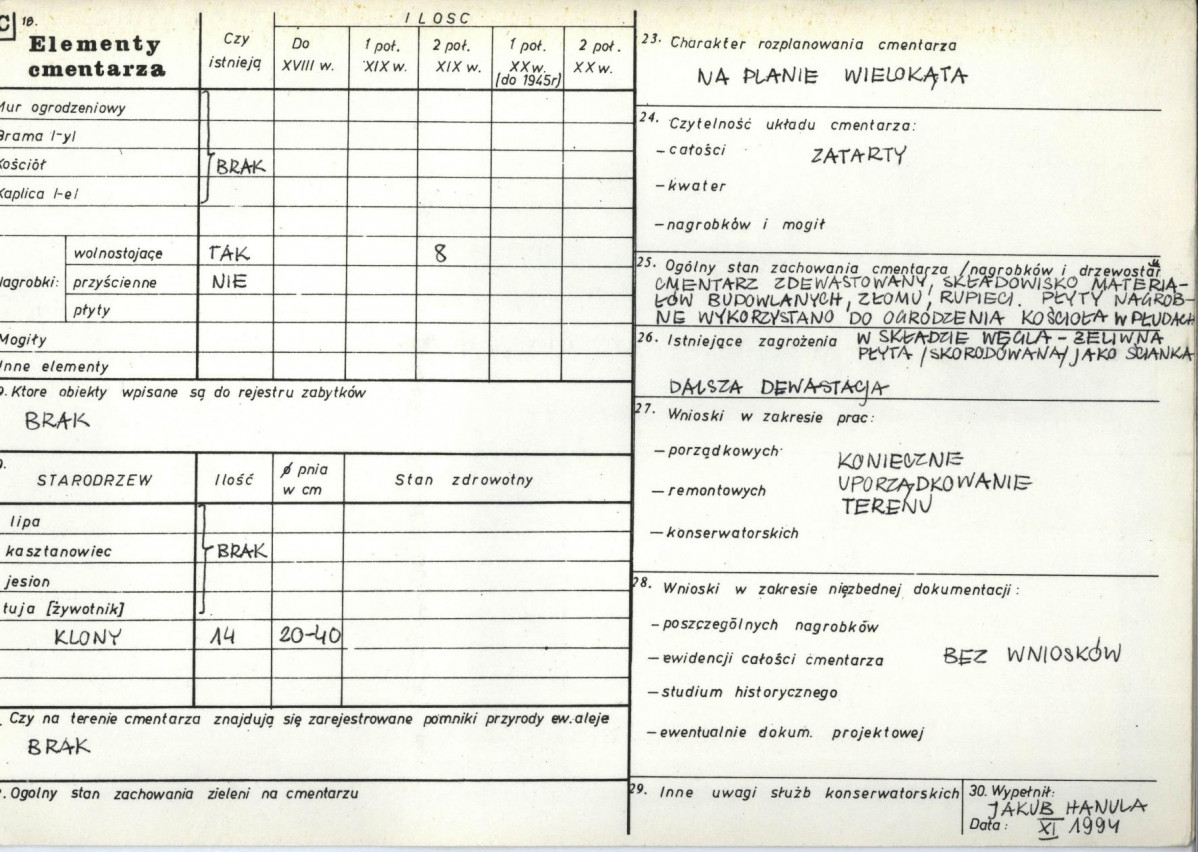 C 18.
Elementy cmentarza
Czy istnieją
ILOSC
Do XVIII w.
1 poł. XIX w.
2 poł. XIX w.
1 poł. XX w. (do 1945r)
2 poł. XX w.
Mur ogrodzeniowy
Brama /-y/
Kościół
BRAK
Kaplica /-e/
Nagrobki:
wolnostojące TAK 8
przyścienne NIE
płyty
Mogiły
Inne elementy
9. Ktore obiekty wpisane są do rejestru zabytków
BRAK
STARODRZEW
Ilość
ø pnia w cm
Stan zdrowotny
lipa
kasztanowiec
BRAK
jesion
tuja [żywotnik]
KLONY 14 20-40
Czy na terenie cmentarza znajdują się zarejestrowane pomniki przyrody ew. aleje
BRAK
Ogolny stan zachowania zieleni na cmentarzu
23. Charakter rozplanowania cmentarza
NA PLANIE WIELOKĄTA
24. Czytelność układu cmentarza:
– całości ZATARTY
– kwater
– nagrobków i mogił
25. Ogólny stan zachowania cmentarza /nagrobków i drzewostanu
CMENTARZ ZDEWASTOWANY, SKŁADOWISKO MATERIA-
ŁÓW BUDOWLANYCH, ZŁOMU, RUPIECI. PŁYTY NAGROB-
NE WYKORZYSTANO DO OGRODZENIA KOŚCIOŁA W PŁUDACH
26. Istniejące zagrożenia W SKŁADZIE WĘGLA – ŻELIWNA
PŁYTA /SKORODOWANA/ JAKO ŚCIANKA
DALSZA DEWASTACJA
27. Wnioski w zakresie prac:
– porządkowych
– remontowych
– konserwatorskich
KONIECZNE
UPORZĄDKOWANIE
TERENU
28. Wnioski w zakresie niezbednej dokumentacji:
– poszczególnych nagrobków
– ewidencji całości cmentarza BEZ WNIOSKÓW
– studium historycznego
– ewentualnie dokum. projektowej
29. Inne uwagi służb konserwatorskich
30. Wypełnił:
JAKUB HANULA
Data: XI 1994